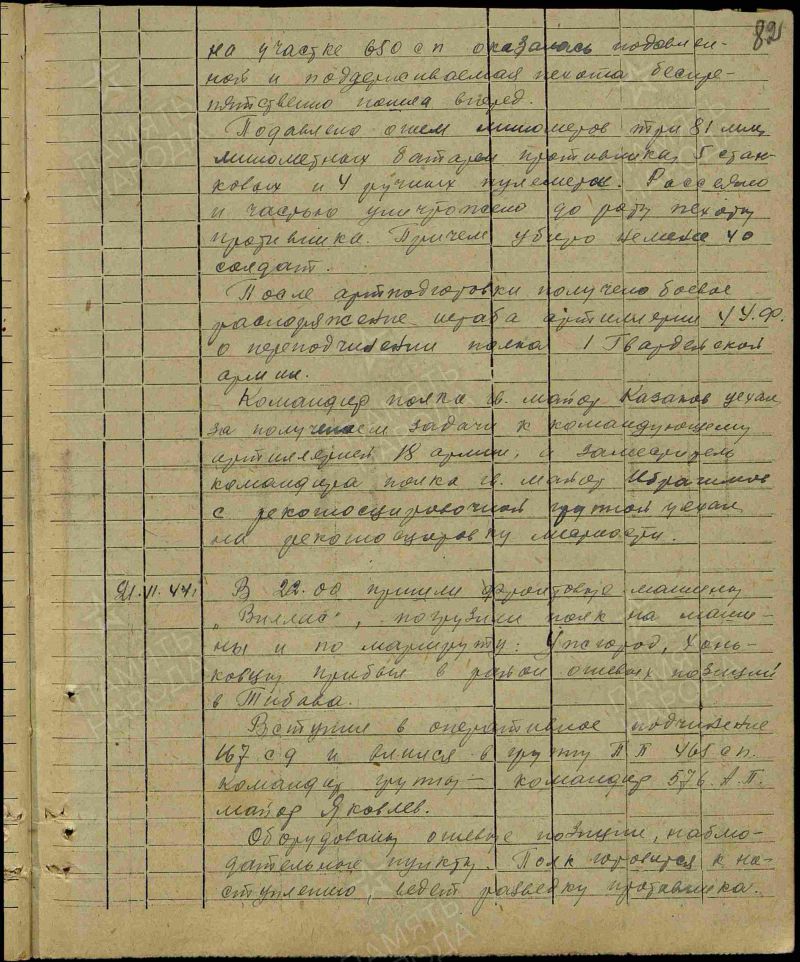 82
на участке 650 сп оказалась подавлен-
ной и поддерживаемая пехота беспре-
пятственно пошла вперед.
Подавлено огнем минометов три 81 мм
минометных батареи противника, 5 стан-
ковых и 4 ручных пулеметов. Рассеяно
и частью уничтожено до роты пехоты
противника. Причем убито не менее 40
солдат.
После артподготовки получено боевое
распоряжение штаба артиллерии 4 У.Ф.
о переподчинении полка 1 Гвардейской
армии.
Командир полка гв. майор Казаков уехал
за получением задачи к командующему
артиллерией 18 армии, а заместитель
командира полка гв. майор Ибрагимов
с рекогносцировочной группой уехал
на рекогносцировку местности.
21.11.44. В 22.00 пришли фронтовые машины
"Виллис", погрузили полк на маши-
ны и по маршруту: Ужгород,
прибыл в район огневых позиций
в Тибава.
Вступил в оперативное подчинение
167 сд и влился в группу ПП 465 сп.
командир группы - командир 576 А.П.
майор Яковлев.
Оборудованы огневые позиции, наблю-
дательные пункты. Полк готовится к на-
ступлению, ведет разведку противника.
ПАМЯТЬ НАРОДА